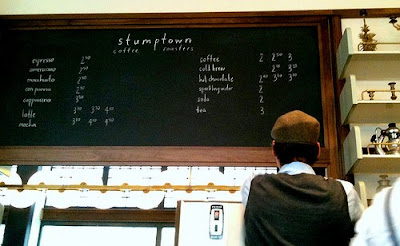 stumptown
coffee roasters
espresso 2⁵⁰
americano 2⁵⁰
macchiato 2⁵⁰
con panna 2⁵⁰
cappuccino 3⁵⁰
latte 3⁵⁰ 3⁷⁵ 4⁵⁰
mocha 3⁵⁰ 4⁰⁰ 4⁵⁰
coffee 2 2⁵⁰ 3
cold brew 2⁵⁰ 3⁵⁰
hot chocolate 2⁵⁰ 3⁰⁰ 3⁵⁰
sparkling water 2
soda 2
tea 3